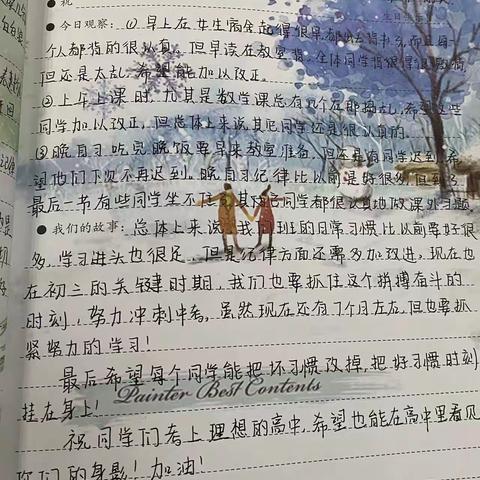 祝
今日观察：①早上在女生宿舍起得很早,都
个人都背的很认真。但早读在教室背,全体同学背很得很
但还是太乱,希望能加以改正。
②上午上课时,尤其是数学课总有几个在那捣乱,希望这些
同学加以改正。但总体上来说,其它同学还是很认真的。
③晚自习吃完晚饭要早来教室准备。但还是有同学迟到,希
望他们下次不再迟到。晚自习纪律比以前是好很多,但到了
最后一节有些同学坐不住,其它同学都很认真地做课外习题。
我们的故事：总体上来说,我们班的日常习惯比以前要好很
多,学习进头也很足,但是纪律方面还需多加改进,现在也
在初三的关键时期,我们也要抓住这个拼搏奋斗的
时刻,努力冲刺中考,虽然现在还有7个月左右,但也要抓
紧努力的学习!
最后希望每个同学能把坏习惯改掉,把好习惯时刻
挂在身上!
Painter Best Contents
祝同学们考上理想的高中,希望也能在高中里看见
你们的身影!加油!